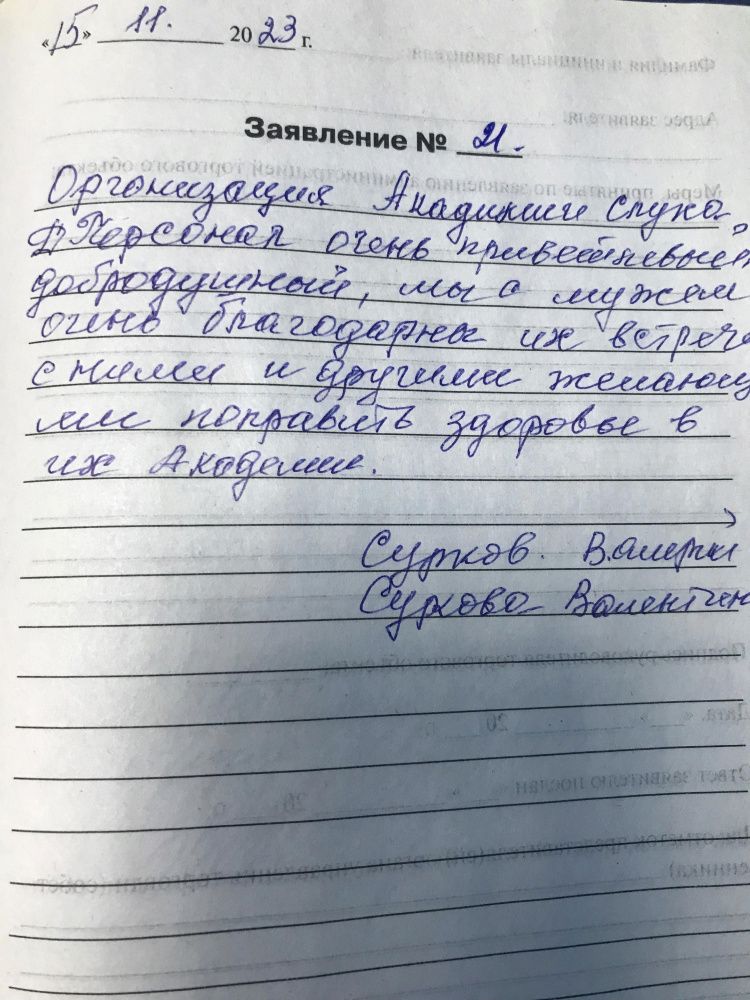 «15» 11. 2023 г.
Заявление № 21.
Организация Академии слуха,
Персонал очень приветливый,
добродушный, мы с мужем
очень благодарны их встрече
с ними и другими желающ
ми поправить здоровье в
их Академии.
Сурков. Валерий
Суркова Валентин
Фамилия и инициалы заявителя
Адрес заявителя:
Меры, принятые по заявлению администрацией торгового объекта:
Подпись руководителя торгового объекта
Дата. « » 20 г.
Ответ заявителю послан « » 20 г.